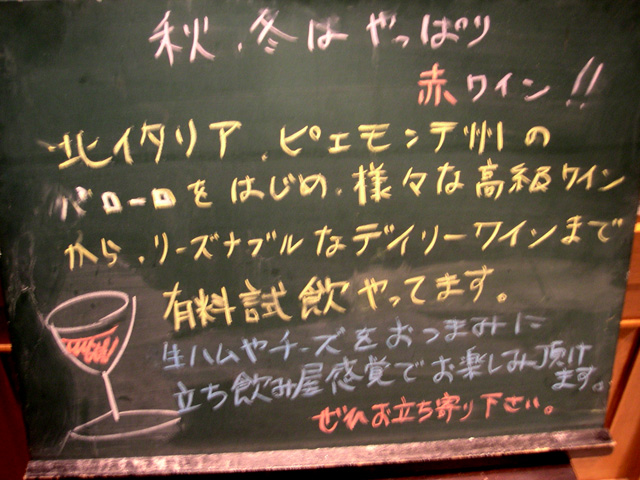 秋、冬はやっぱり
赤ワイン!!
北イタリア、ピェモンテ州の
バローロをはじめ、様々な高級ワイン
から、リーズナブルなデイリーワインまで
有料試飲やってます。
生ハムやチーズをおつまみに
立ち飲み屋感覚でお楽しみ頂け
ます。
ぜひお立ち寄り下さい。